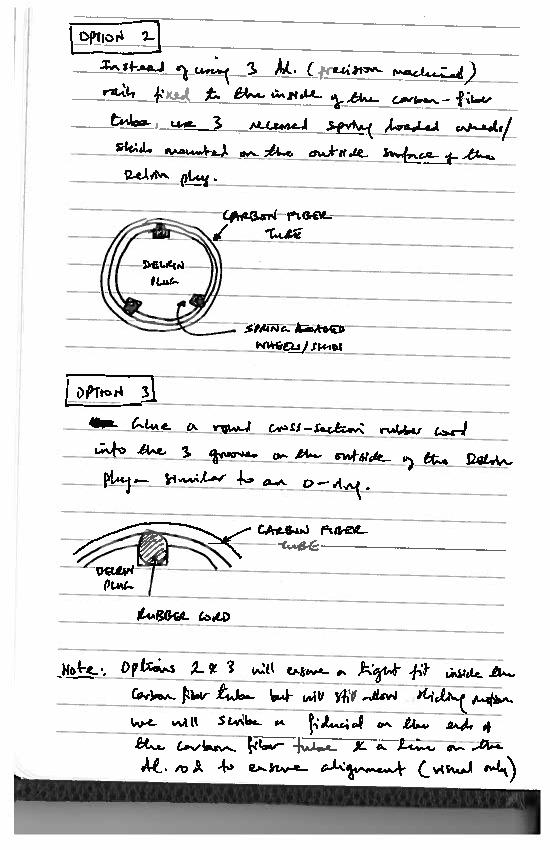 OPTION 2
Instead of using 3 Al. (precision machined)
rails fixed to the inside of the carbon-fiber
tube, use 3 recessed spring loaded wheels/
skids mounted on the outside surface of the
Delrin plug.
CARBON FIBER
TUBE
DELRIN
PLUG
SPRING LOADED
WHEELS/SKIDS
OPTION 3
Glue a round cross-section rubber cord
into the 3 grooves on the outside of the Delrin
plug - similar to an O-ring.
CARBON FIBER
TUBE
DELRIN
PLUG
RUBBER CORD
Note: Options 2 & 3 will ensure a tight fit inside the
carbon fiber tube but will still allow sliding motion
we will scribe a fiducial on the ends of
the carbon fiber tube & a line on the
Al. rod to ensure alignment (visual only)